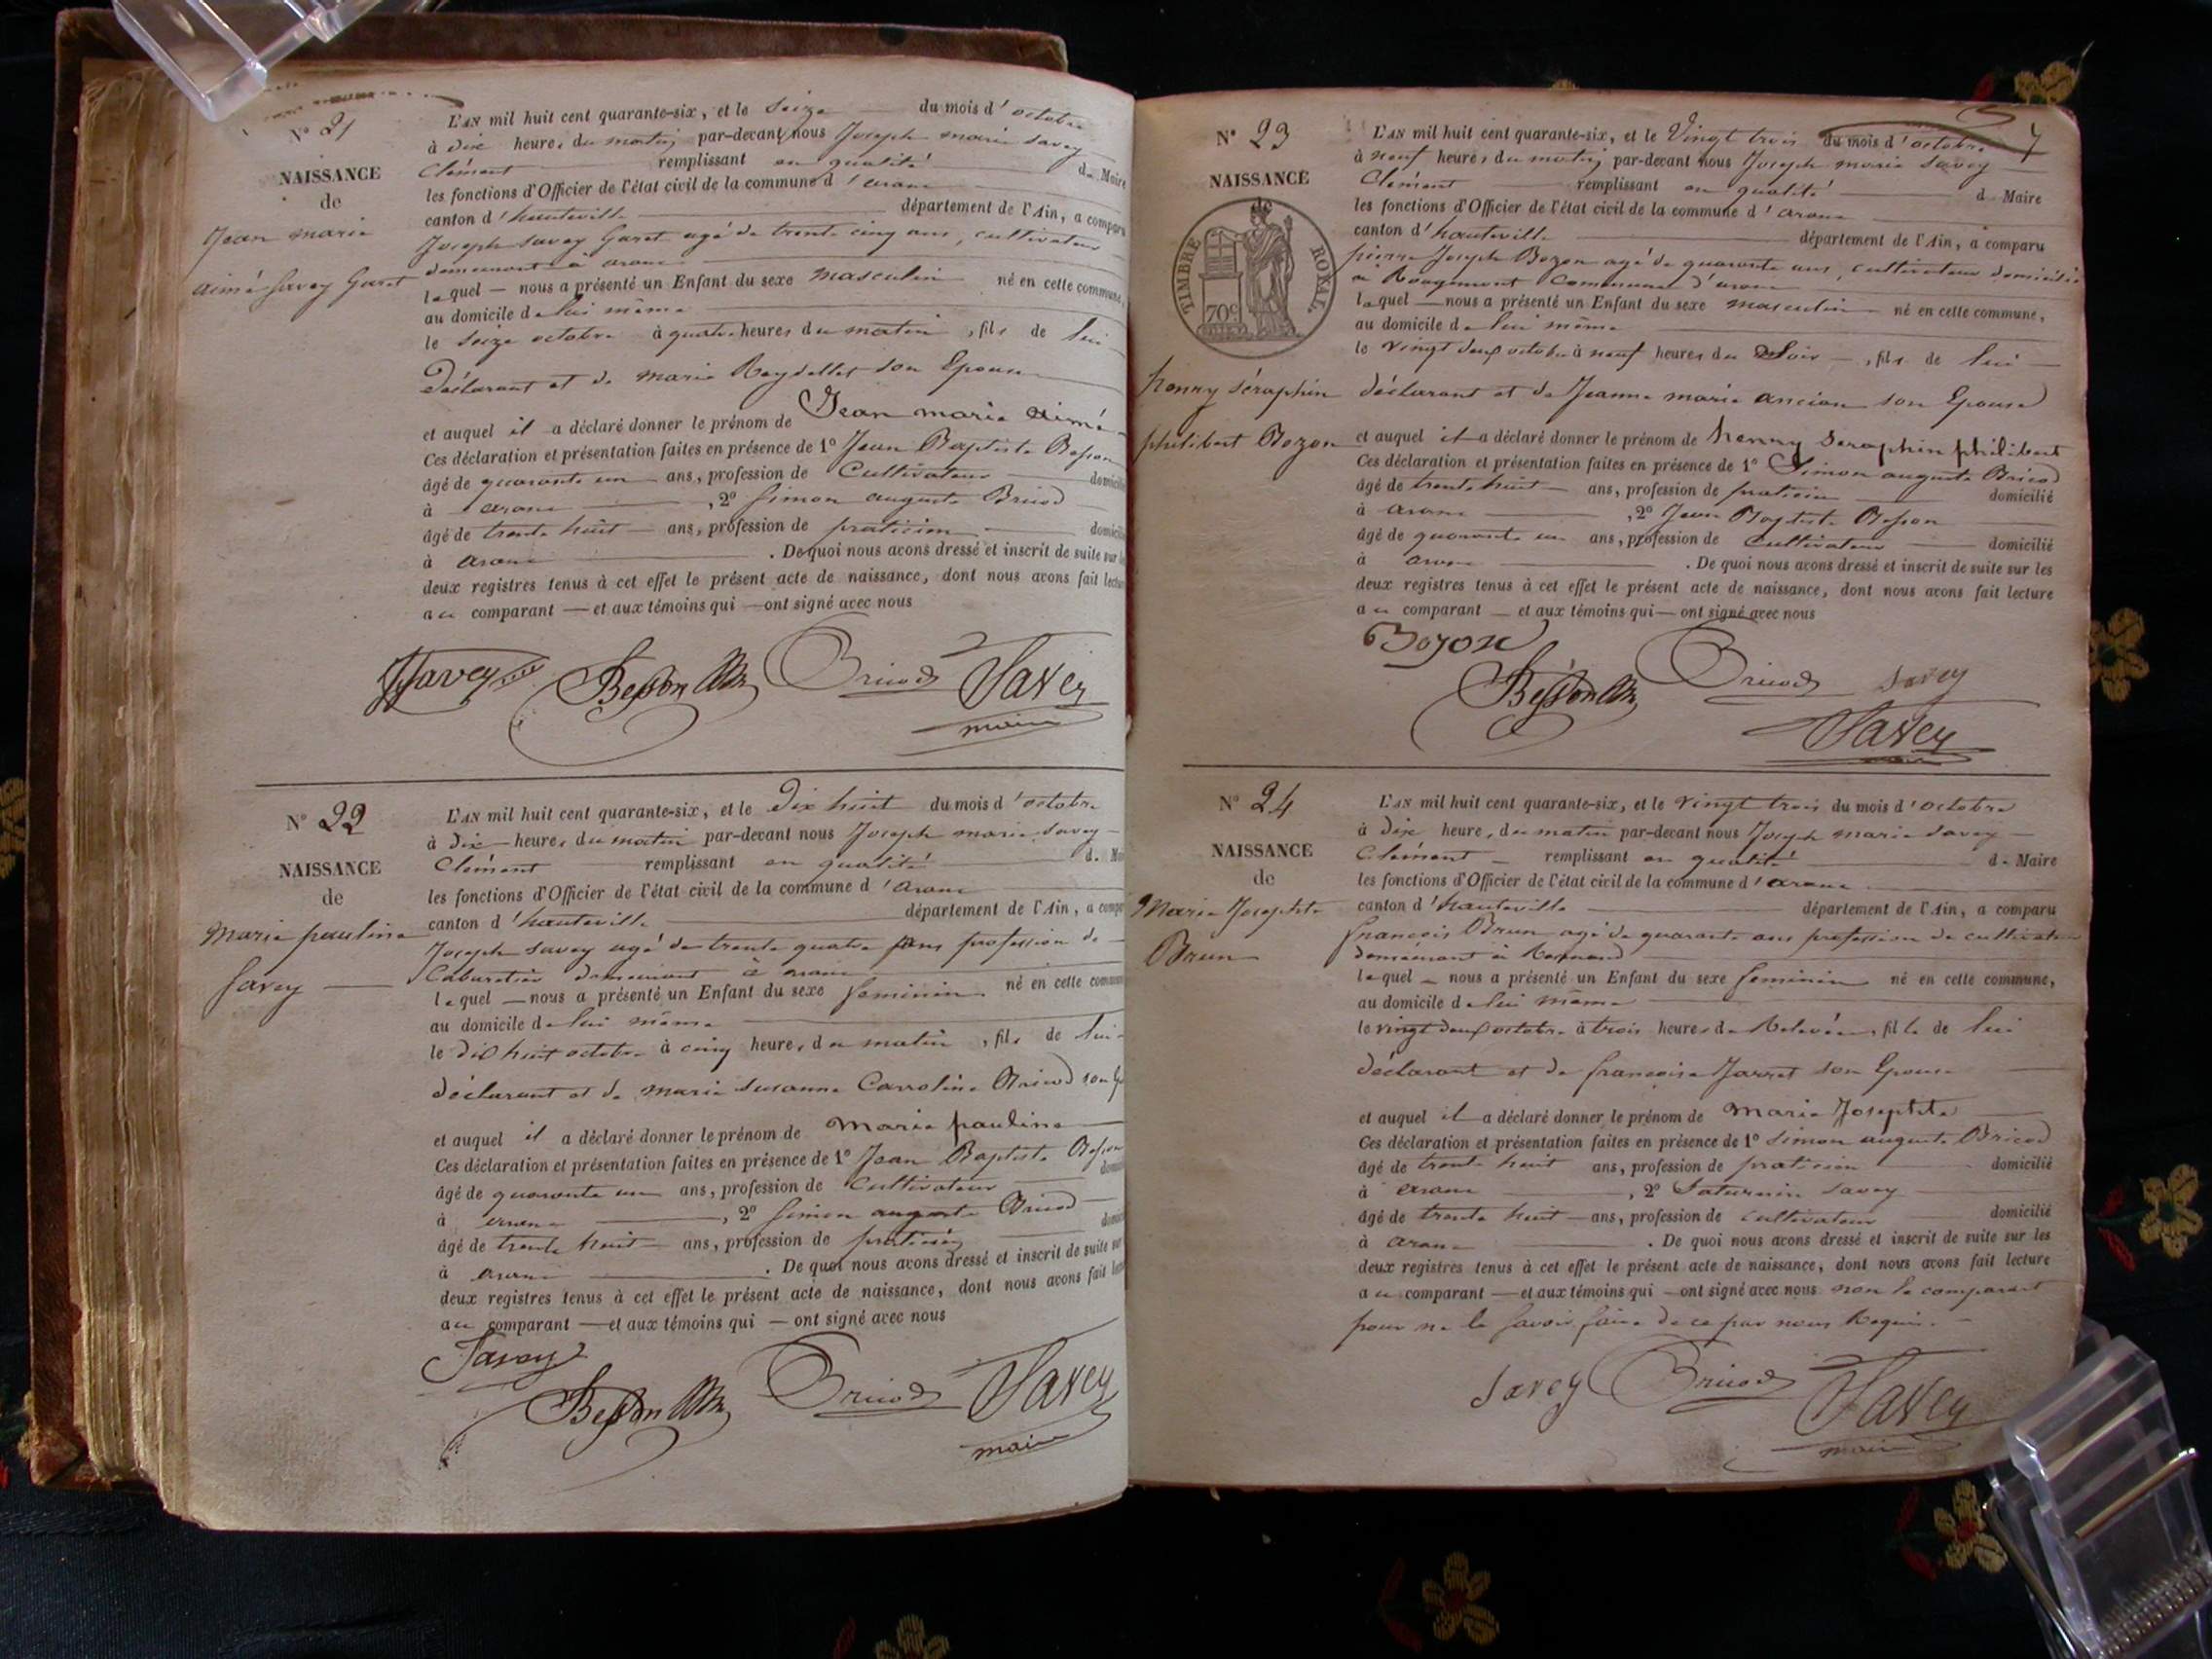 N° 21
NAISSANCE
de
Jean marie
aimé Savey Garet
L'AN mil huit cent quarante-six, et le Seize du mois d'octobre
à dix heures du matin par-devant nous Joseph marie Savey
Clément remplissant en qualité de Maire
les fonctions d'Officier de l'état civil de la commune d'aranc
canton d'hauteville département de l'Ain, a comparu
Joseph Savey Garet agé de trente cinq ans, cultivateur
demeurant à aranc
lequel — nous a présenté un Enfant du sexe masculin né en cette commune,
au domicile de lui même
le Seize octobre à quatre heures du matin, fils de lui
Déclarant et de marie Reydellet son Epouse
et auquel il a déclaré donner le prénom de Jean marie aimé
Ces déclaration et présentation faites en présence de 1° Jean Baptiste Besson
âgé de quarante un ans, profession de Cultivateur domicilié
à aranc, 2° Simon auguste Bricod
âgé de trente huit ans, profession de praticien domicilié
à aranc. De quoi nous avons dressé et inscrit de suite sur les
deux registres tenus à cet effet le présent acte de naissance, dont nous avons fait lecture
au comparant — et aux témoins qui — ont signé avec nous
JSavey Besson Bricod Savey
maire
N° 22
NAISSANCE
de
Marie pauline
Savey
L'AN mil huit cent quarante-six, et le Dix huit du mois d'octobre
à Dix heures du matin par-devant nous Joseph marie Savey
Clément remplissant en qualité de Maire
les fonctions d'Officier de l'état civil de la commune d'aranc
canton d'hauteville département de l'Ain, a comparu
Joseph Savey agé de trente quatre ans profession de
Cabaretier demeurant à aranc
lequel — nous a présenté un Enfant du sexe feminin né en cette commune
au domicile de lui même
le dix huit octobre à cinq heures du matin, fils de lui
déclarant et de marie Susanne Carroline Bricod son
et auquel il a déclaré donner le prénom de marie pauline
Ces déclaration et présentation faites en présence de 1° Jean Baptiste Besson
âgé de quarante un ans, profession de Cultivateur domicilié
à aranc, 2° Simon auguste Bricod
âgé de trente huit ans, profession de praticien domicilié
à aranc. De quoi nous avons dressé et inscrit de suite sur
deux registres tenus à cet effet le présent acte de naissance, dont nous avons fait lecture
au comparant — et aux témoins qui — ont signé avec nous
Savey
Besson Bricod Savey
maire
7
N° 23
NAISSANCE
de
TIMBRE ROYAL
70c
henry Séraphin
philibert Bozon
L'AN mil huit cent quarante-six, et le Vingt trois du mois d'octobre
à neuf heures du matin par-devant nous Joseph marie Savey
Clément remplissant en qualité de Maire
les fonctions d'Officier de l'état civil de la commune d'aranc
canton d'hauteville département de l'Ain, a comparu
pierre Joseph Bozon agé de quarante ans, cultivateur domicilié
à Rougemont Commune d'aranc
lequel — nous a présenté un Enfant du sexe masculin né en cette commune,
au domicile de lui même
le vingt deux octobre à neuf heures du Soir, fils de lui
déclarant et de Jeanne marie ancian son Epouse
et auquel il a déclaré donner le prénom de henry Seraphin philibert
Ces déclaration et présentation faites en présence de 1° Simon auguste Bricod
âgé de trente huit ans, profession de praticien domicilié
à aranc, 2° Jean Baptiste Besson
âgé de quarante un ans, profession de Cultivateur domicilié
à aranc. De quoi nous avons dressé et inscrit de suite sur les
deux registres tenus à cet effet le présent acte de naissance, dont nous avons fait lecture
au comparant — et aux témoins qui — ont signé avec nous
Bozon
Besson Bricod Savey
Savey
maire
N° 24
NAISSANCE
de
Marie Josephte
Brun
L'AN mil huit cent quarante-six, et le vingt trois du mois d'octobre
à Dix heures du matin par-devant nous Joseph marie Savey
Clément remplissant en qualité de Maire
les fonctions d'Officier de l'état civil de la commune d'aranc
canton d'hauteville département de l'Ain, a comparu
francois Brun agé de quarante ans profession de cultivateur
demeurant à
lequel — nous a présenté un Enfant du sexe feminin né en cette commune,
au domicile de lui même
le vingt deux octobre à trois heures de Relevée, fille de lui
déclarant et de francoise Jarret son Epouse
et auquel il a déclaré donner le prénom de marie Josephte
Ces déclaration et présentation faites en présence de 1° Simon auguste Bricod
âgé de trente huit ans, profession de praticien domicilié
à aranc, 2° Saturnin Savey
âgé de trente huit ans, profession de cultivateur domicilié
à aranc. De quoi nous avons dressé et inscrit de suite sur les
deux registres tenus à cet effet le présent acte de naissance, dont nous avons fait lecture
au comparant — et aux témoins qui — ont signé avec nous non le comparant
pour ne le savoir faire de ce par nous Requis.
Savey Bricod Savey
maire